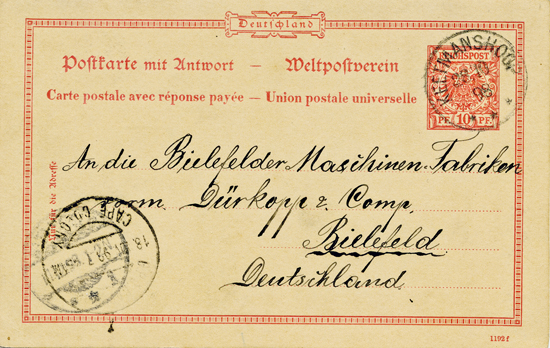 Deutschland
Postkarte mit Antwort — Weltpostverein
Carte postale avec réponse payée — Union postale universelle
REICHSPOST
PF. 10 PF.
An die Bielefelder Maschinen-Fabriken
vorm. Dürkopp & Comp.
Bielefeld
Deutschland
Nur für die Adresse
CAPE COLONY
1192 f